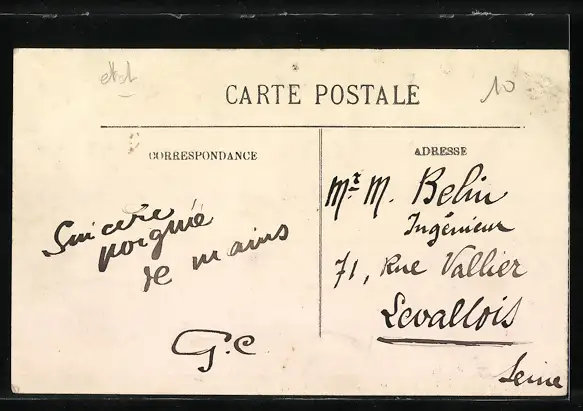 10
CARTE POSTALE
CORRESPONDANCE
Sincère
poignée
de mains
G.C
ADRESSE
Mr M. Belin
Ingénieur
71, Rue Vallier
Levallois
Seine